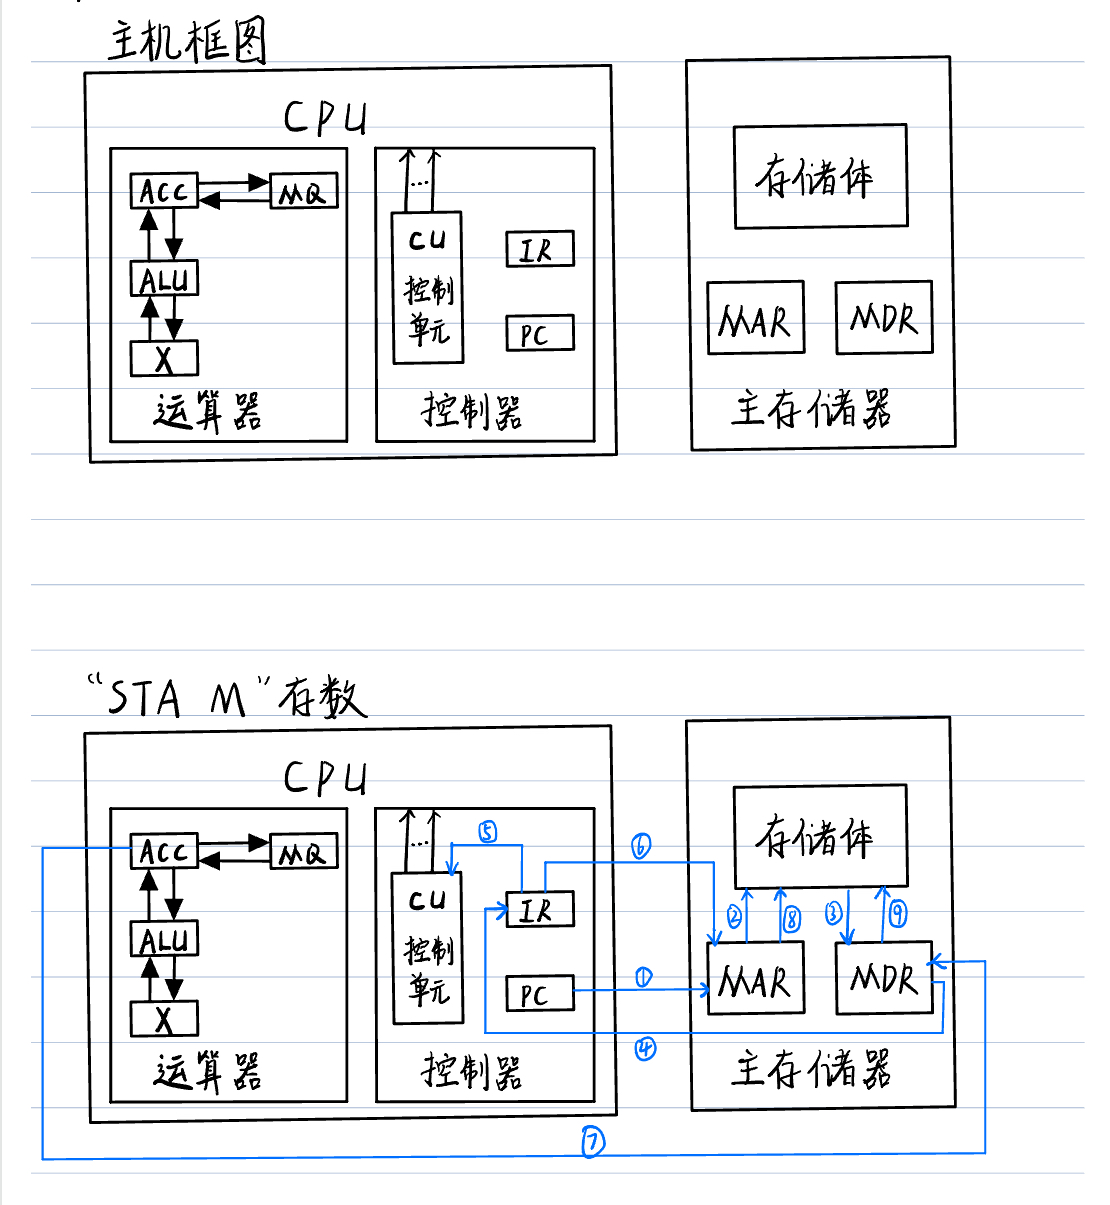 主机框图
CPU
ACC
MQ
ALU
X
运算器
...
CU
控制
单元
IR
PC
控制器
存储体
MAR
MDR
主存储器
“STA M”存数
CPU
ACC
MQ
ALU
X
运算器
...
⑤
CU
控制
单元
IR
PC
控制器
⑥
①
④
存储体
②
⑧
③
⑨
MAR
MDR
主存储器
⑦